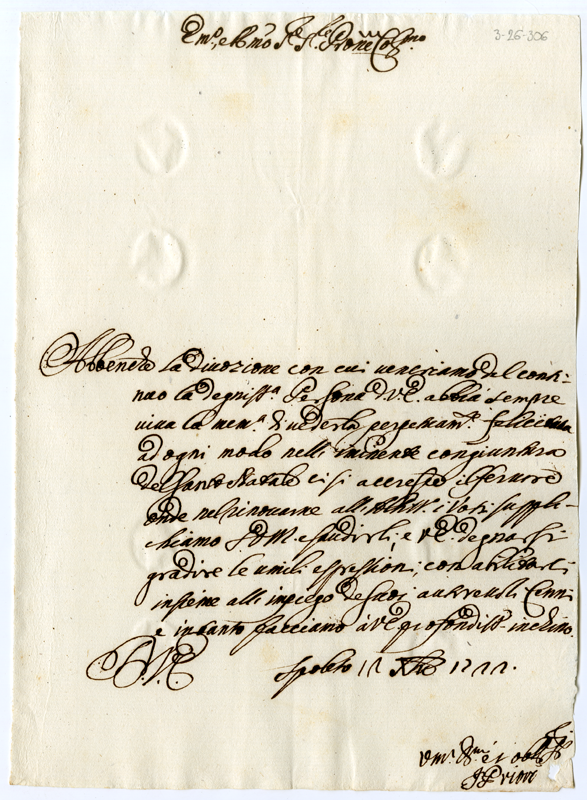 Em.º, e R.mo Sig.re Sig.re Prõne Col.mo
3-26-306
Abbenche la divozione con cui veneriamo dal conti-
nuo la degniss.ª Persona di V.E. abbia sempre
viva la mem.ª di vederla perpetuam.te
ad ogni modo nell' iminente congiuntura
del Santo Natale ci si accresce il fervore
onde nel rinovarne all' i Voti suppli-
chiamo S.D.M. esaudirli, e V.E. degnarsi
gradire le umili espressioni, con abilitarli
insieme all' impiego de suoi autorevoli Cenni
e intanto facciamo à V.E. profondiss.º inchino
D.V.E.
Spoleto 12 Xbre
Um.i Dm.i et obb.
I Priori